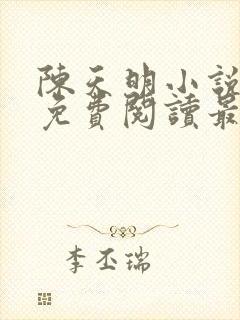 陳天明小說
免費閱讀最
李丕瑞